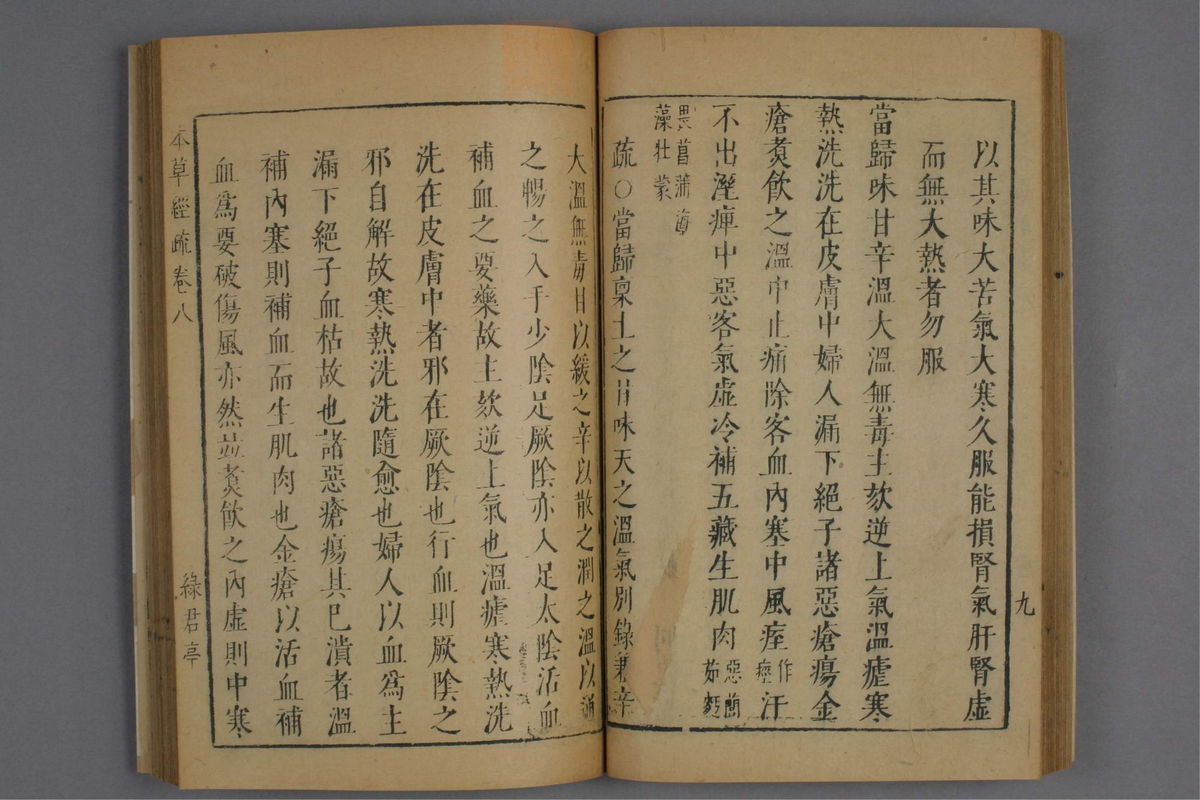 以其味大苦氣大寒久服能損腎氣肝腎虛
而無大熱者勿服
當歸味甘辛溫大溫無毒主欬逆上氣溫瘧寒
熱洗洗在皮膚中婦人漏下絕子諸惡瘡瘍金
瘡煑飲之溫中止痛除客血內塞中風痓作痙汗
不出溼痺中惡客氣虛冷補五藏生肌肉惡䕡茹麪
畏菖蒲海
藻牡蒙
疏○當歸稟土之甘味天之溫氣別錄兼辛
大溫無毒甘以緩之辛以散之潤之溫以通
之暢之入手少陰足厥陰亦入足太陰活血
補血之要藥故主欬逆上氣也溫瘧寒熱洗
洗在皮膚中者邪在厥陰也行血則厥陰之
邪自解故寒熱洗洗隨愈也婦人以血爲主
漏下絕子血枯故也諸惡瘡瘍其已潰者溫
補內塞則補血而生肌肉也金瘡以活血補
血爲要破傷風亦然並煑飲之內虛則中寒
本草經疏卷八
綠君亭
九